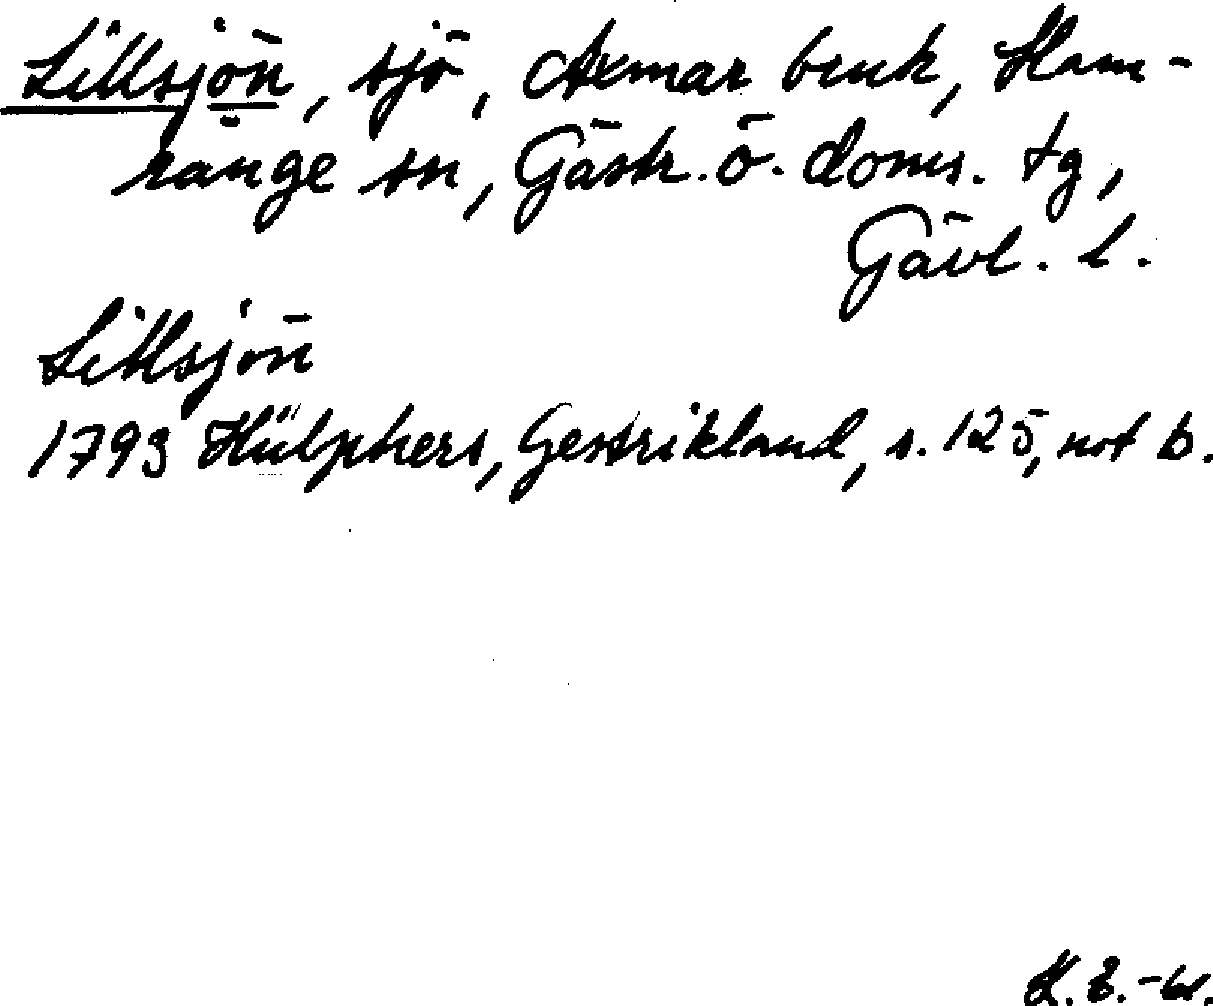 Lillsjön, sjö, Axmar bruk, Ham-
rånge sn, Gästr. ö. doms. tg,
Gävl. l.
Lillsjön
1793 Hülphers, Gestrikland, s. 125, not b.